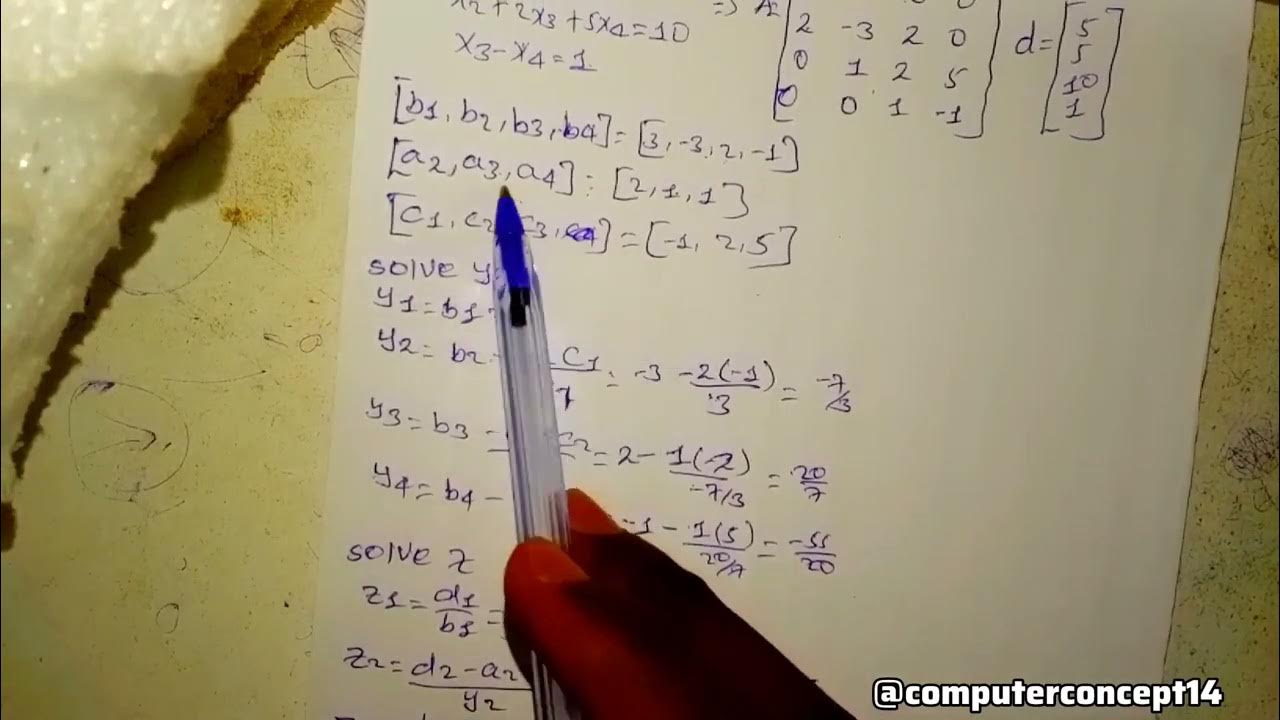 x2+2x3+5x4=10
x3-x4=1
=> A=
2 -3 2 0
0 1 2 5
0 0 1 -1
d= [5
5
10
1]
[b1, b2, b3, b4] = [3, -3, 2, -1]
[a2, a3, a4] = [2, 1, 1]
[c1, c2, c3, c4] = [-1, 2, 5]
solve y
y1 = b1
y2 = b2 - c1 = -3 - 2(-1)/3 = -7/3
y3 = b3 - c2 = 2 - 1(-2)/-7/3 = 20/7
y4 = b4 - -1 - 1(5)/20/7 = -55/20
solve z
z1 = d1/b1 =
z2 = d2 - a2/y2
@computerconcept14